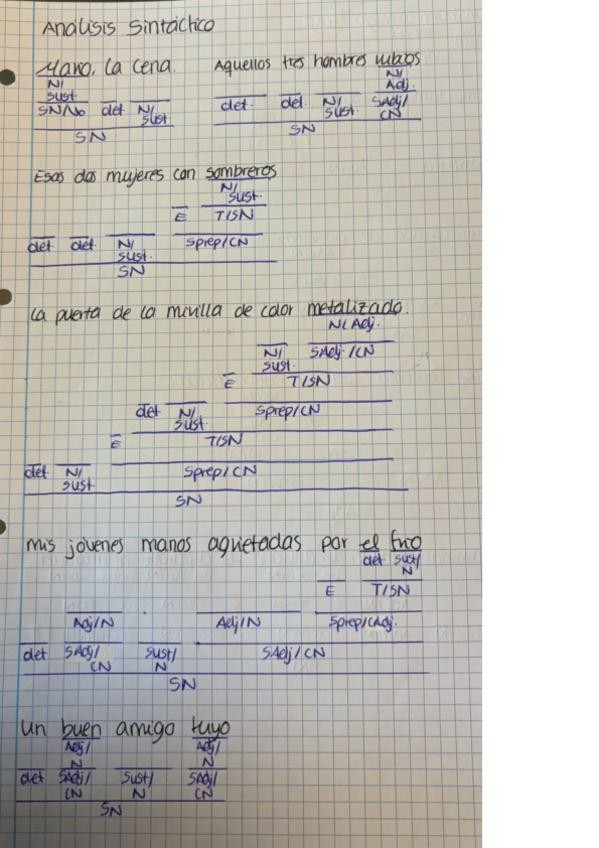 Análisis Sintáctico
Mario, la cena. Aquellos tres hombres rubios
N/ N/
sust. Adj.
SN/Vo det N/ det. det. N/ SAdj/
sust sust. CN
SN SN
Esas dos mujeres con sombreros
N/
sust.
E T/SN
det det N/ Sprep/CN
sust.
SN
La puerta de la mirilla de color metalizado.
N/Adj.
N/ SAdj./CN
sust.
E T/SN
det N/ Sprep/CN
sust.
E T/SN
det N/ Sprep/CN
sust
SN
mis jóvenes manos agrietadas por el frío
det sust/
N
E T/SN
Adj/N Adj/N Sprep/CAdj.
det SAdj/ Sust/ SAdj/CN
CN N
SN
Un buen amigo tuyo
Adj/ Adj/
N N
det SAdj/ Sust/ SAdj/
CN N CN
SN